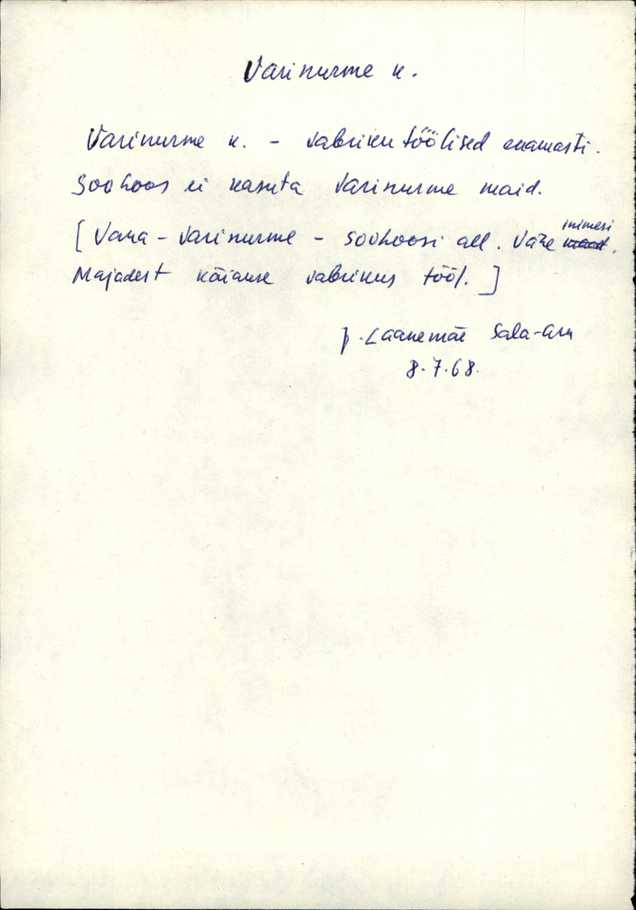 Varinurme k.
Varinurme k. - vabriku töölised enamasti.
Sovhoos ei kasuta Varinurme maid.
[Vana-Varinurme - sovhoosi all. Vähe inimesi.
Majadest käiakse vabrikus tööl.]
J. Laanemäe Sala-aru
8.7.68.